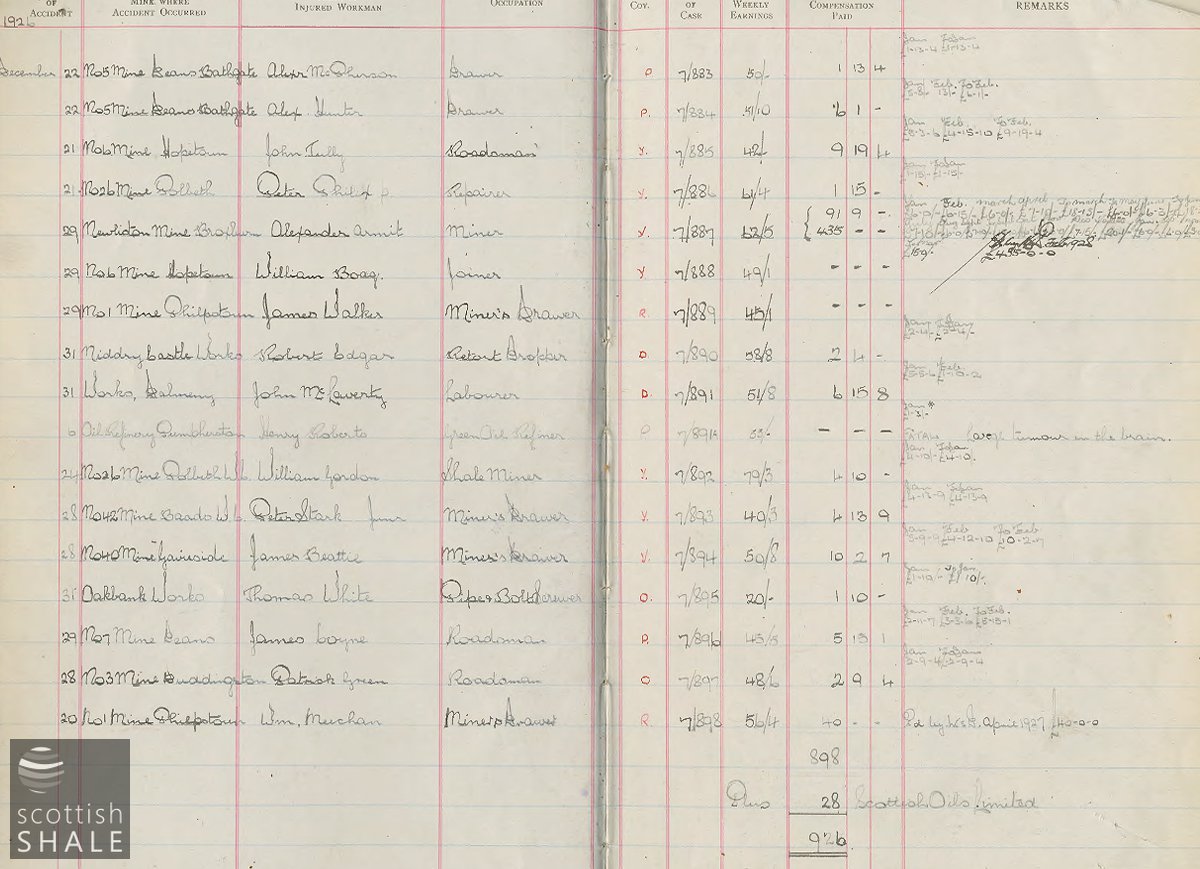 OF ACCIDENT MINE WHERE ACCIDENT OCCURRED INJURED WORKMAN OCCUPATION COY. OF CASE WEEKLY EARNINGS COMPENSATION PAID REMARKS
1926
Jan To Jan
1-13-4 £1-13-4
December 22 No5 Mine Deans Bathgate Alexr McPherson Drawer P. 7/883 50/- 1 13 4
Jan Feb. To Feb.
22 No5 Mine Deans Bathgate Alex. Hunter Drawer P. 7/884 51/10 6 1 -
Jan Feb. To Feb.
£4-15-10 £9-19-4
21 No6 Mine Hopetoun John Tully Roadsman Y. 7/885 42/- 9 19 4
Jan To Jan
1-15/- £1-15/-
21 No26 Mine Polbeth Peter Y. 7/886 61/4 1 15 -
Jan Feb. march april
{ 91 9 -
29 Newliston Mine Broxburn Alexander Armit Miner Y. 7/887 62/5 { 435 - -
Feb 1928
£435-0-0
29 No6 Mine Hopetoun William Boag. Joiner Y 7/888 49/1 - - -
29 No1 Mine Philpstoun James Walker Miner's Drawer R. 7/889 45/1 - - -
Jan To Jan
2-4/- £2-4/-
31 Niddry Castle Works Robert Edgar Retort Dropper O 7/890 58/8 2 4 -
Jan Feb
£1-10-2
31 Works, Dalmeny John McLaverty Labourer D 7/891 51/8 6 15 8
Jan *
£1-3/-
6 Oil Refinery Pumpherston Henry Roberts Green Oil Refiner P 7/891A 53/- - - - FATAL. Large tumour in the brain.
Jan To Jan
4-10/- £4-10.
24 No26 Mine Polbeth W.C. William Gordon Shale Miner Y. 7/892 79/3 4 10 -
Jan To Jan
4-13-9 £4-13-9
28 No42 Mine Baads W.C. Peter Stark Junr Miner's Drawer Y. 7/893 40/3 4 13 9
Jan Feb To Feb
5-9-9 £4-12-10 £10-2-7
28 No40 Mine Gavieside James Beattie Miner's Drawer Y. 7/894 50/8 10 2 7
Jan To Jan
£1-10/- £1/10/-
31 Oakbank Works Thomas White Pipe & Bolt Screwer O. 7/895 20/- 1 10 -
Jan Feb. To Feb.
2-11-7 £3-3-6 £5-15-1
29 No7 Mine Deans James Coyne Roadsman P. 7/896 45/5 5 15 1
Jan To Jan
2-9-4 £2-9-4
28 No3 Mine Duddingston Patrick Green Roadsman O 7/897 48/6 2 9 4
20 No1 Mine Philpstoun Wm. Meechan Miner's Drawer R. 7/898 56/4 40 - - Pd by April 1927 £40-0-0
898
Plus 28 Scottish Oils Limited
926
scottish
SHALE